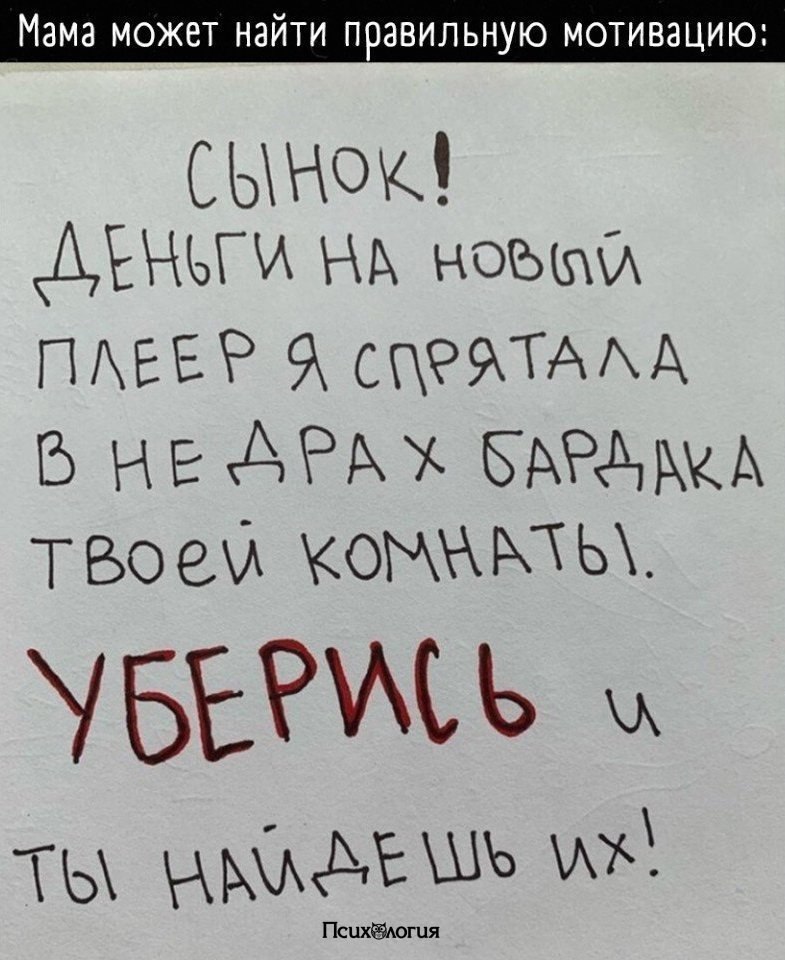 Мама может найти правильную мотивацию:
СЫНОК!
ДЕНЬГИ НА НОВЫЙ
ПЛЕЕР Я СПРЯТАЛА
В НЕДРАХ БАРДАКА
ТВОЕЙ КОМНАТЫ.
УБЕРИСЬ и
ТЫ НАЙДЕШЬ ИХ!
Психология